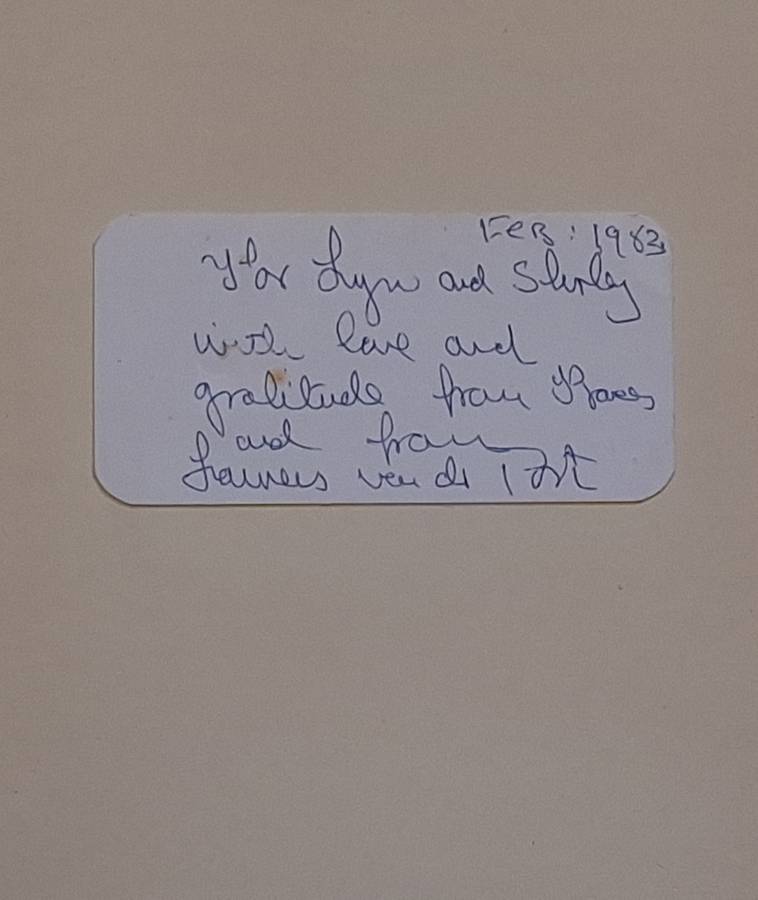 Feb: 1983
For Lyn and Shirley
with love and
gratitude from
and from
Laurens van der Post